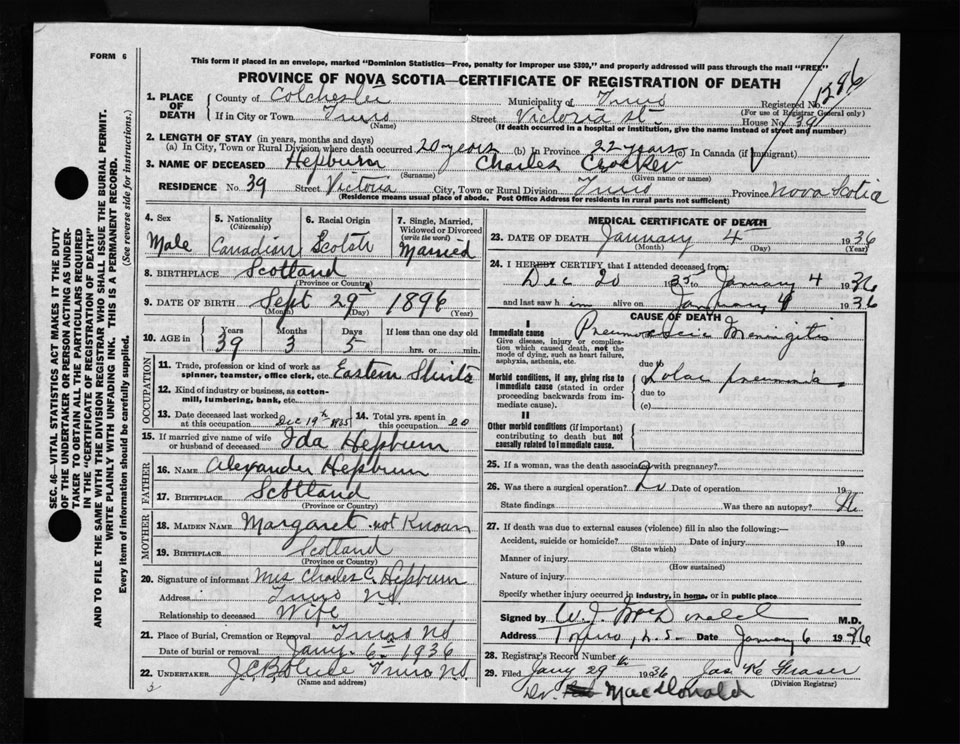 FORM 6
This form if placed in an envelope, marked "Dominion Statistics—Free, penalty for improper use $300," and properly addressed will pass through the mail "FREE"
PROVINCE OF NOVA SCOTIA—CERTIFICATE OF REGISTRATION OF DEATH
1286
1. PLACE OF DEATH County of Colchester Municipality of Truro Registered No.
(For use of Registrar General only)
If in City or Town Truro Street Victoria St. House No. 39
(Name) (If death occurred in a hospital or institution, give the name instead of street and number)
2. LENGTH OF STAY (in years, months and days)
(a) In City, Town or Rural Division where death occurred 20 years (b) In Province 22 years (c) In Canada (if immigrant)
3. NAME OF DECEASED Hepburn Charles Crocker
(Surname) (Given name or names)
RESIDENCE No. 39 Street Victoria City, Town or Rural Division Truro Province Nova Scotia
(Residence means usual place of abode. Post Office Address for residents in rural parts not sufficient)
4. Sex Male
5. Nationality (Citizenship) Canadian
6. Racial Origin Scotch
7. Single, Married, Widowed or Divorced (write the word) Married
8. BIRTHPLACE Scotland
(Province or Country)
9. DATE OF BIRTH Sept 29th 1896
(Month) (Day) (Year)
10. AGE in Years 39 Months 3 Days 5 If less than one day old
hrs. or min.
OCCUPATION
11. Trade, profession or kind of work as spinner, teamster, office clerk, etc. Eastern
12. Kind of industry or business, as cotton-mill, lumbering, bank, etc.
13. Date deceased last worked at this occupation Dec 19th 1935
14. Total yrs. spent in this occupation 20
15. If married give name of wife or husband of deceased Ida Hepburn
FATHER
16. NAME Alexander Hepburn
17. BIRTHPLACE Scotland
(Province or Country)
MOTHER
18. MAIDEN NAME Margaret not Known
19. BIRTHPLACE Scotland
(Province or Country)
20. Signature of informant Mrs Charles C. Hepburn
Address Truro N.S.
Relationship to deceased Wife
21. Place of Burial, Cremation or Removal Truro NS
Date of burial or removal Jany. 6th 1936
22. UNDERTAKER Truro NS.
(Name and address)
MEDICAL CERTIFICATE OF DEATH
23. DATE OF DEATH January 4 1936
(Month) (Day) (Year)
24. I HEREBY CERTIFY, that I attended deceased from:
Dec 20 1935 to January 4 1936
and last saw him alive on January 4 1936
CAUSE OF DEATH
I
Immediate cause
Give disease, injury or complication which caused death, not the mode of dying, such as heart failure, asphyxia, asthenia, etc.
Meningitis
due to
Morbid conditions, if any, giving rise to immediate cause (stated in order proceeding backwards from immediate cause).
Lobar
due to
(c)
II
Other morbid conditions (if important) contributing to death but not causally related to immediate cause.
25. If a woman, was the death associated with pregnancy?
26. Was there a surgical operation? Date of operation 19
State findings Was there an autopsy?
27. If death was due to external causes (violence) fill in also the following:
Accident, suicide or homicide? Date of injury 19
(State which)
Manner of injury
(How sustained)
Nature of injury
Specify whether injury occurred in industry, in home, or in public place
Signed by W. J. McDonald M.D.
Address Truro, N.S. Date January 6 1936
28. Registrar's Record Number
29. Filed Jany 29th 1936 Jas Fraser
(Division Registrar)
Dr. MacDonald
SEC. 46—VITAL STATISTICS ACT MAKES IT THE DUTY
OF THE UNDERTAKER OR PERSON ACTING AS UNDER-
TAKER TO OBTAIN ALL THE PARTICULARS REQUIRED
IN THE "CERTIFICATE OF REGISTRATION OF DEATH"
AND TO FILE THE SAME WITH THE DIVISION REGISTRAR WHO SHALL ISSUE THE BURIAL PERMIT.
WRITE PLAINLY WITH UNFADING INK. THIS IS A PERMANENT RECORD.
Every item of information should be carefully supplied. (See reverse side for instructions.)